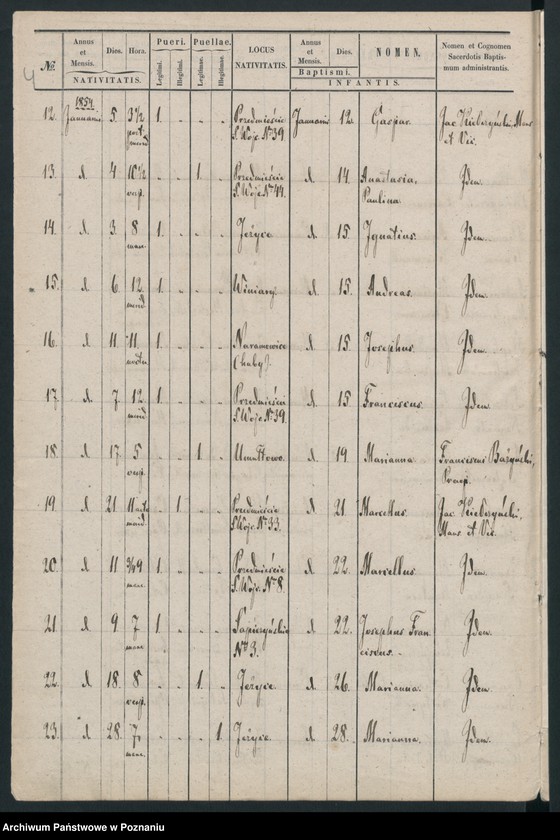 Nō.
Annus et Mensis.
Dies.
Hora.
Pueri.
Puellae.
LOCUS NATIVITATIS.
Annus et Mensis.
Dies.
NOMEN.
Nomen et Cognomen Sacerdotis Baptismum administrantis.
Legitimi.
Illegitimi.
Legitimae.
Illegitimae.
NATIVITATIS.
Baptismi.
INFANTIS.
4
1854
12. Januarius 5. 3½ post merid 1. Przedmieście S. Wojc. No 39. Januarius 12. Gaspar. Jac Mans. et Vic.
13 d 4 10½ vesp. 1. Przedmieście S. Wojc No 44. d 14. Anastasia, Paulina. Idem
14. d 3. 8 mane. 1. Jeżyce d 15. Ignatius. Idem.
15. d 6. 12. merid 1. Winiary. d 15. Andreas. Idem.
16. d 11. 11. 1. Naramowice (huby). d 15. Josephus. Idem.
17. d 7. 12 merid 1. Przedmieście S. Wojc No 39. d 15 Franciscus. Idem.
18. d 17. 5 vesp. 1. Umultowo. d 19. Marianna. Franciscus Bażyński, Praep.
19. d 21 11 1. Przedmieście S Wojc. No 33. d 21 Marcellus. Jac Mans. et Vic.
20. d 11 ¾9 mane. 1. Przedmieście S. Wojc. No 8. d 22. Marcellus. Idem.
21. d 9. 7 mane 1. No 3. d 22. Josephus Franciscus. Idem.
22. d 18. 8 vesp. 1. Jeżyce. d 26. Marianna. Idem
23. d 28. 7 mane. 1. Jeżyce. d 28. Marianna. Idem.
Archiwum Państwowe w Poznaniu